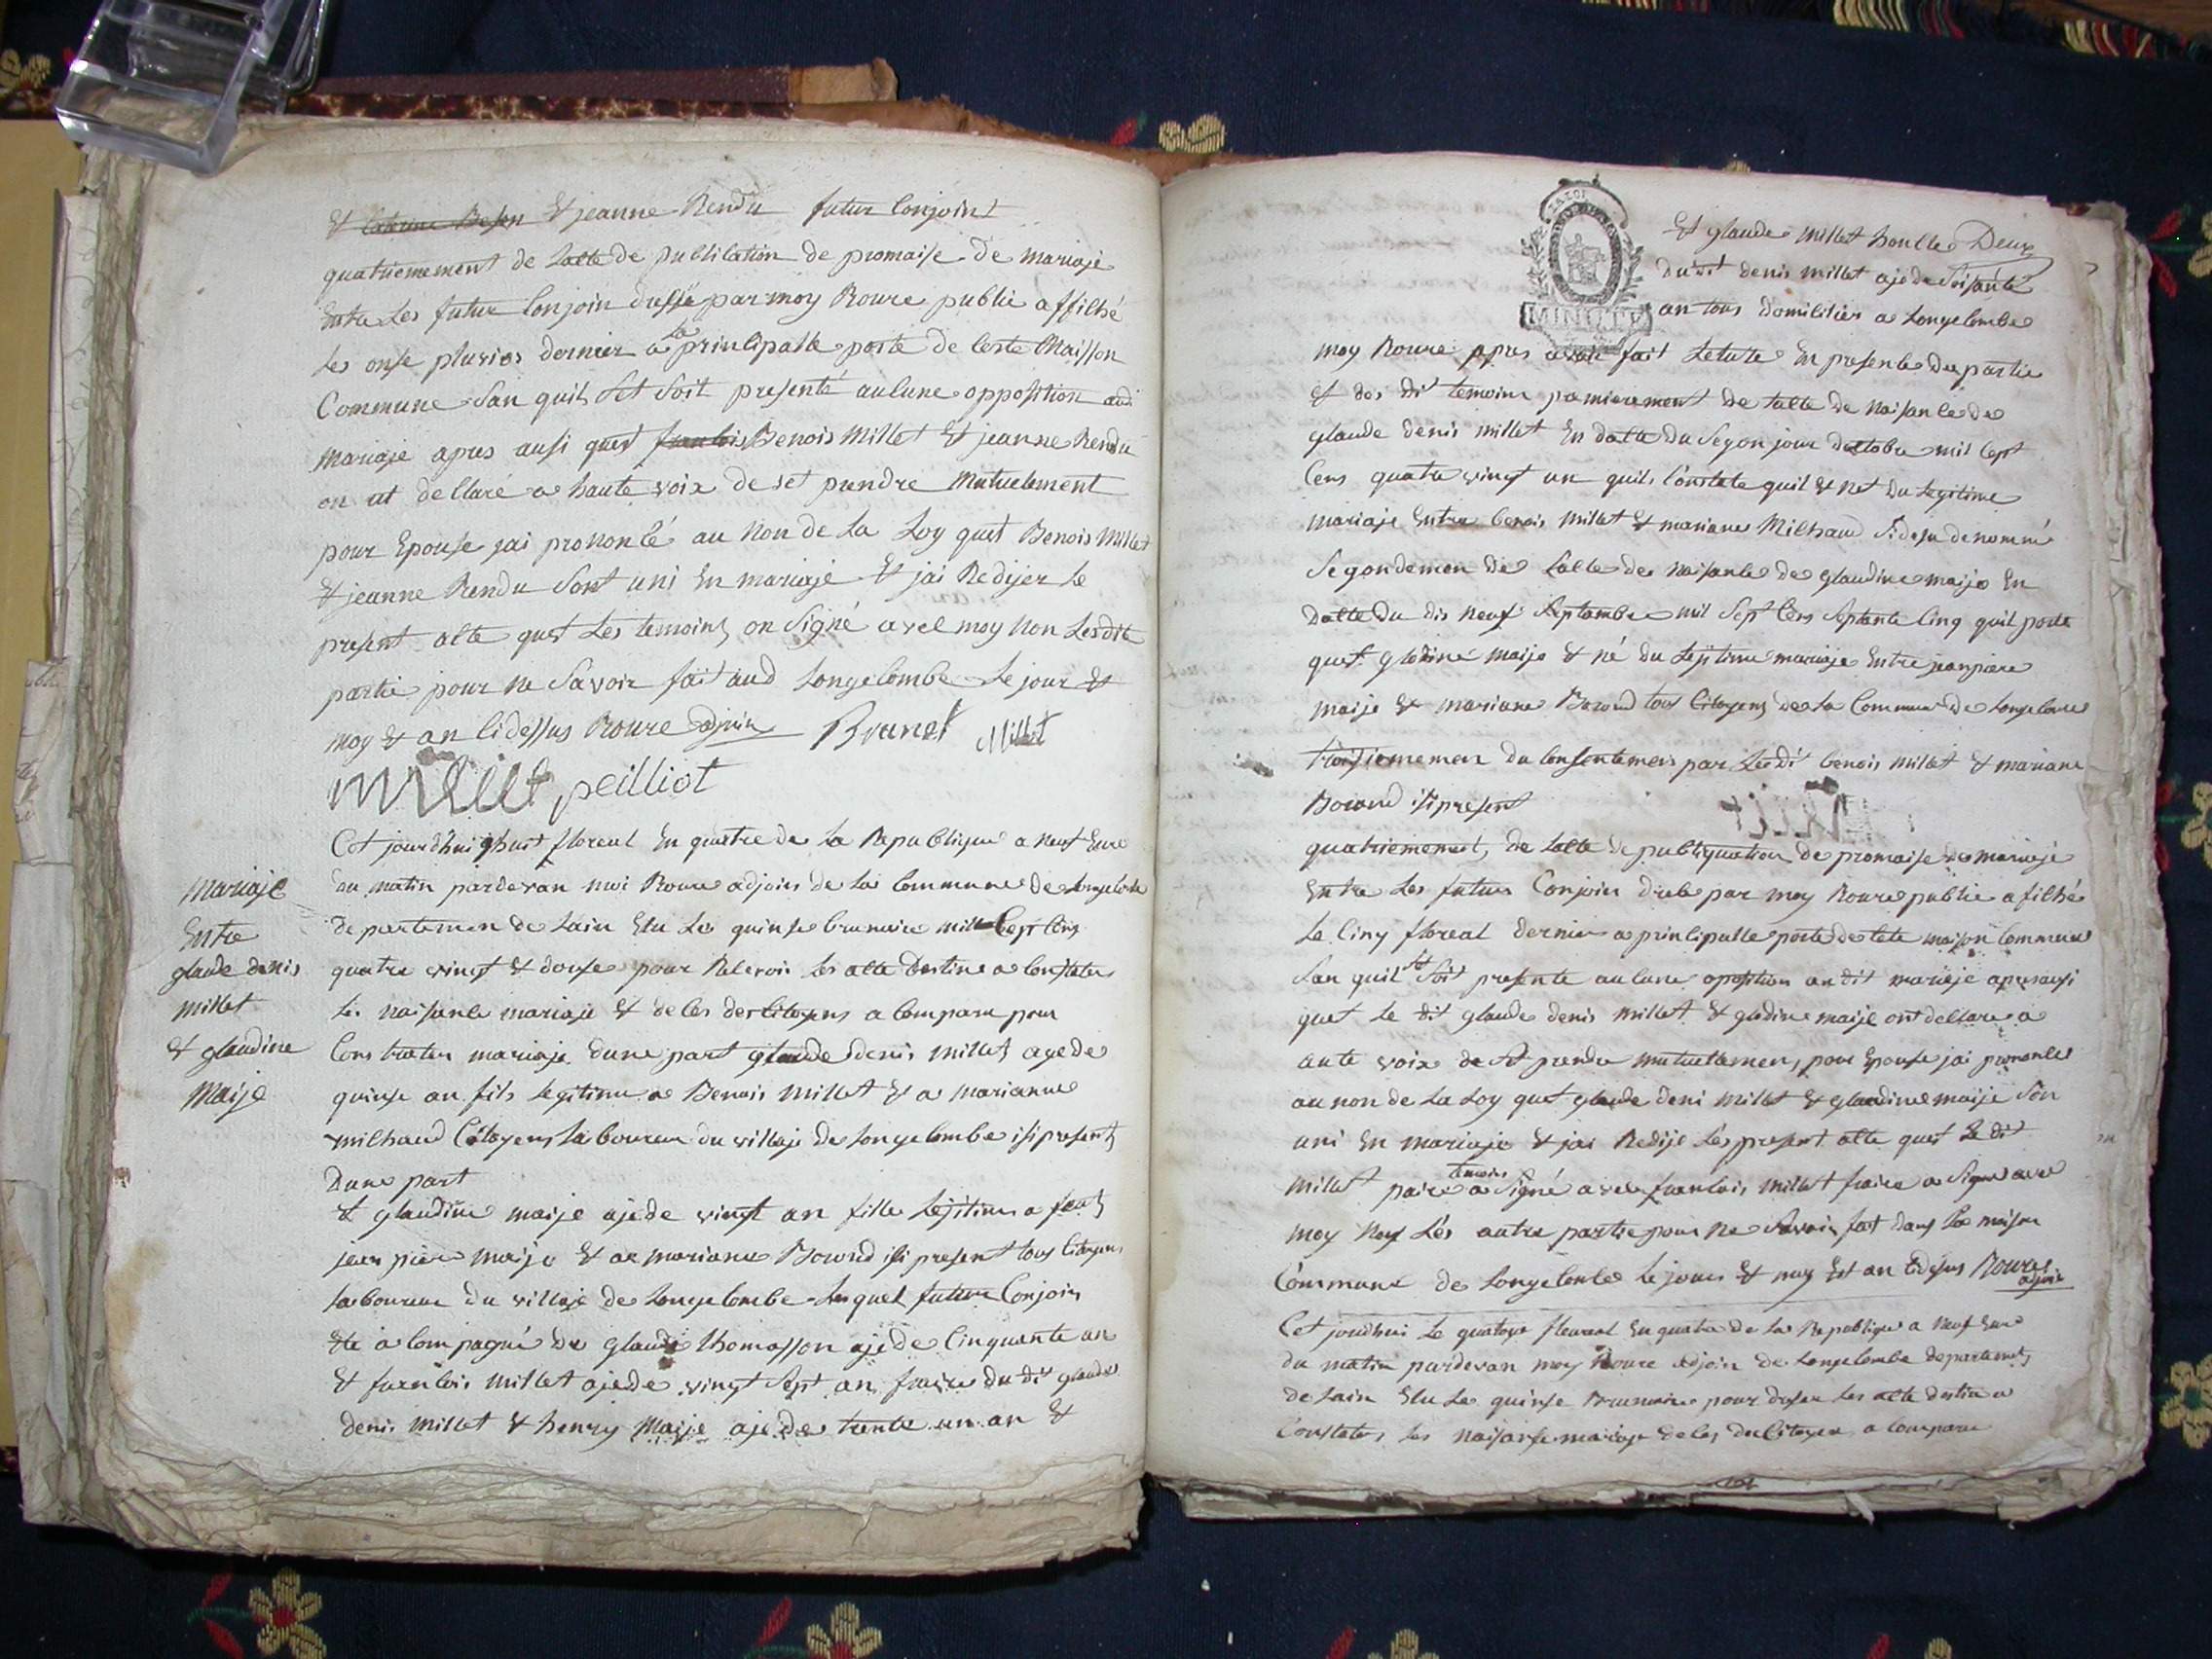 Et Caterine Beson Et jeanne Rendu futur Conjoint
quatriemement de lacte de publication de promaise de mariaje
Entre Les futur Conjoin dressé par moy Roure publié affiché
Les onse plusios dernier a La principalle porte de ceste Maisson
Commune San quil set soit presenté aucune opposition aud
mariaje apres ausi quet francois Benois Millet Et jeanne Rendu
on at declaré a haute voix de set prendre Mutuelement
pour Epouse jai prononcé au Non de La Loy quet Benois Millet
Et jeanne Rendu Sont uni En mariaje Et jai Redijer Le
present acte quet Les temoins on Signé avec moy Non Lesdite
partie pour ne Savoir fait aud Longecombe Le jour Et
moy Et an Cidessus Roure adjoin Brunet Millet
Millet peilliot
Cet jourdhui huit floreal En quatre de La Republique a neuf Eure
du matin pardevan moi Roure adjoin de La Commune de Longecombe
departemen de Lain Elu Le quinse brumaire mill Cept Cens
quatre vingt Et douse pour Recevoir Les acte Destine a Constater
Les naisance mariaje Et deces des Citoyens a Comparu pour
Contracter mariaje dune part glaude denis Millet age de
quinse an fils Legitime a Benois Millet Et a Marianne
milhaud Citoyens Laboureur du villaje de Longecombe isi present
Dune part
Et glaudine maije aje de vingt an fille Lejitime a feut
jean piere maije Et a mariane Borond isi present tous Citoyens
Laboureur du villaje de Longecombe Lesquel future Conjoin
Ete acompagné de glaude thomasson aje de Cinquante an
Et francois Millet aje de vingt Sept an fraire du dit glaude
denis Millet Et henry Maije aje de trente un an Et
mariaje
Entre
glaude denis
millet
Et glaudine
Maije
LA LOI
MINUTE
Et glaude Millet honcle Deux
dudit denis millet aje de Soisante
an tous domicilies a Longecombe
moy Roure apres avoir fait Lecture En presence des partie
Et des dit temoins premierement de lacte de Naisance de
glaude denis Millet En datte du Segon jour doctobre mil Cept
Cens quatre vingt un quil Constate quil Et net du Legitime
mariaje Entre benois Millet Et mariane Milhaud Sidesu denommé
Segondemen de Lacte de naisance de glaudine maije En
datte du dis neuf Septambre mil Sept Cens Septante Cinq quil porte
quet glodine maije Et né du Lejitime mariaje Entre jeanpiere
maije Et mariane Borond tous Citoyens de La Commune de Longecombe
troisiememen du Consentemens par Ledit benois Millet Et mariane
Borond isi present
quatriemement de Lacte de publiquation de promaise de mariaje
Entre Les futur Conjoin dresé par moy Roure publie afiché
Le Cinq floreal dernier a principalle porte de cete maison Commune
San quil set Soit presente aucune oposition au dit mariaje apres ausi
quet Le dit glaude denis Millet Et glodine maije ont declare a
aute voix de set prendre mutuellemen pour Epouse jai prononcé
au non de La Loy quet glaude deni Millet Et glaudine maije Son
uni En mariaje Et jai Redije Les present acte quet Le dit
Millet paire temoin a Signé avec francois Millet fraire a Signe avec
moy Noy Les autre partie pour ne Savoir fait dans La maison
Commune de Longecombe Le jour Et moy Et an Cidesus Roure
adjoin
Cet jourdhui Le quatorse floreal En quatre de La Republique a Neuf Eure
du matin pardevan moy Roure adjoin de Longecombe departement
de Lain Elu Le quinse Brumaire pour dreser Les acte destine a
Constater Les naisanse mariaje deces des Citoyens a Comparu